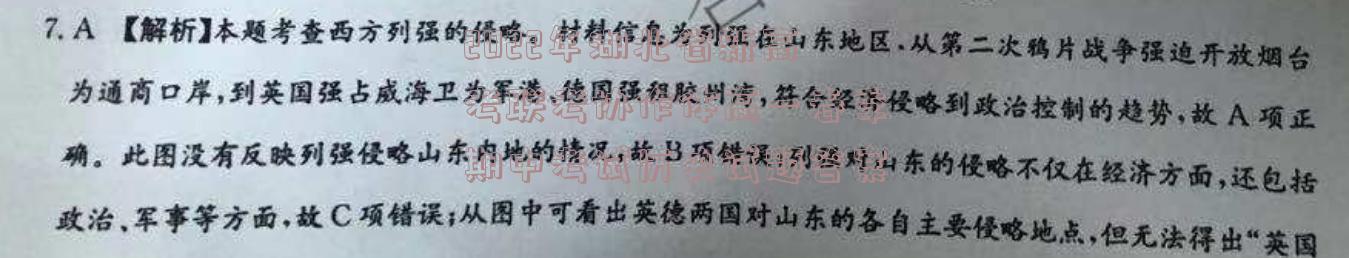 7. A 【解析】本题考查西方列强的侵略。材料信息为列强在山东地区,从第二次鸦片战争强迫开放烟台
为通商口岸,到英国强占威海卫为军港、德国强租胶州湾,符合经济侵略到政治控制的趋势,故 A 项正
确。此图没有反映列强侵略山东内地的情况,故 B 项错误;列强对山东的侵略不仅在经济方面,还包括
政治、军事等方面,故 C 项错误;从图中可看出英德两国对山东的各自主要侵略地点,但无法得出“英国
2022年湖北省新高
考联考协作体高一春季
期中考试历史试题答案